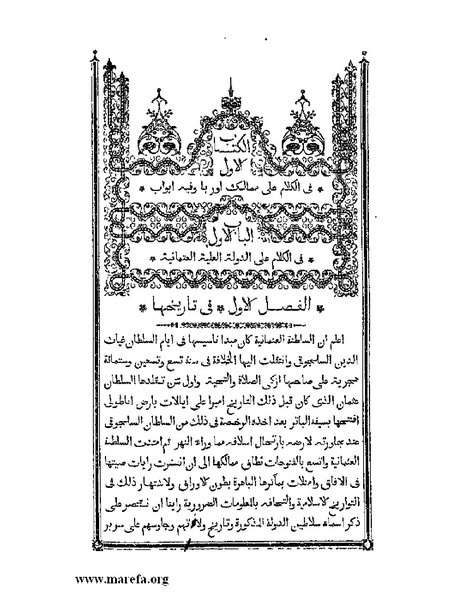 الكتاب
الاول
* فى الكلام على ممالك اوربا وفيه ابواب *
الباب الاول
* فى الكلام على الدولة العلية العثمانية *
* الفصل الاول * فى تاريخها *
اعلم ان السلطنة العثمانية كان مبدا تاسيسها فى ايام السلطان غياث
الدين السلجوقى وانتقلت اليها الخلافة فى سنة تسع وتسعين وستمائة
هجرية على صاحبها ازكى الصلاة والتحية واول من تقلدها السلطان
عثمان الذى كان قبل ذلك التاريخ اميرا على ايالات بارض اناطولى
افتتحها بسيفه الباتر بعد اخذه الرخصة فى ذلك من السلطان السلجوقى
عند مجاورته لارضه بارتحال اسلافه مما وراء النهر ثم امتدت السلطنة
العثمانية واتسع بالفتوحات نطاق ممالكها الى ان انتشرت رايات صيتها
فى الافاق وامتلات بمآثرها الباهرة بطون الاوراق ولاشتهار ذلك فى
التواريخ الاسلامية والتحاقه بالمعلومات الضرورية راينا ان نقتصر على
ذكر اسماء سلاطين الدولة المذكورة وتاريخ ولادتهم وجلوسهم على سرير
www.marefa.org